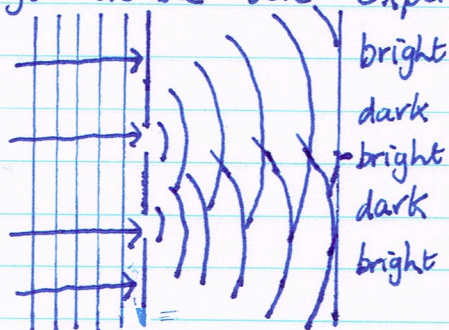 bright
dark
bright
dark
bright